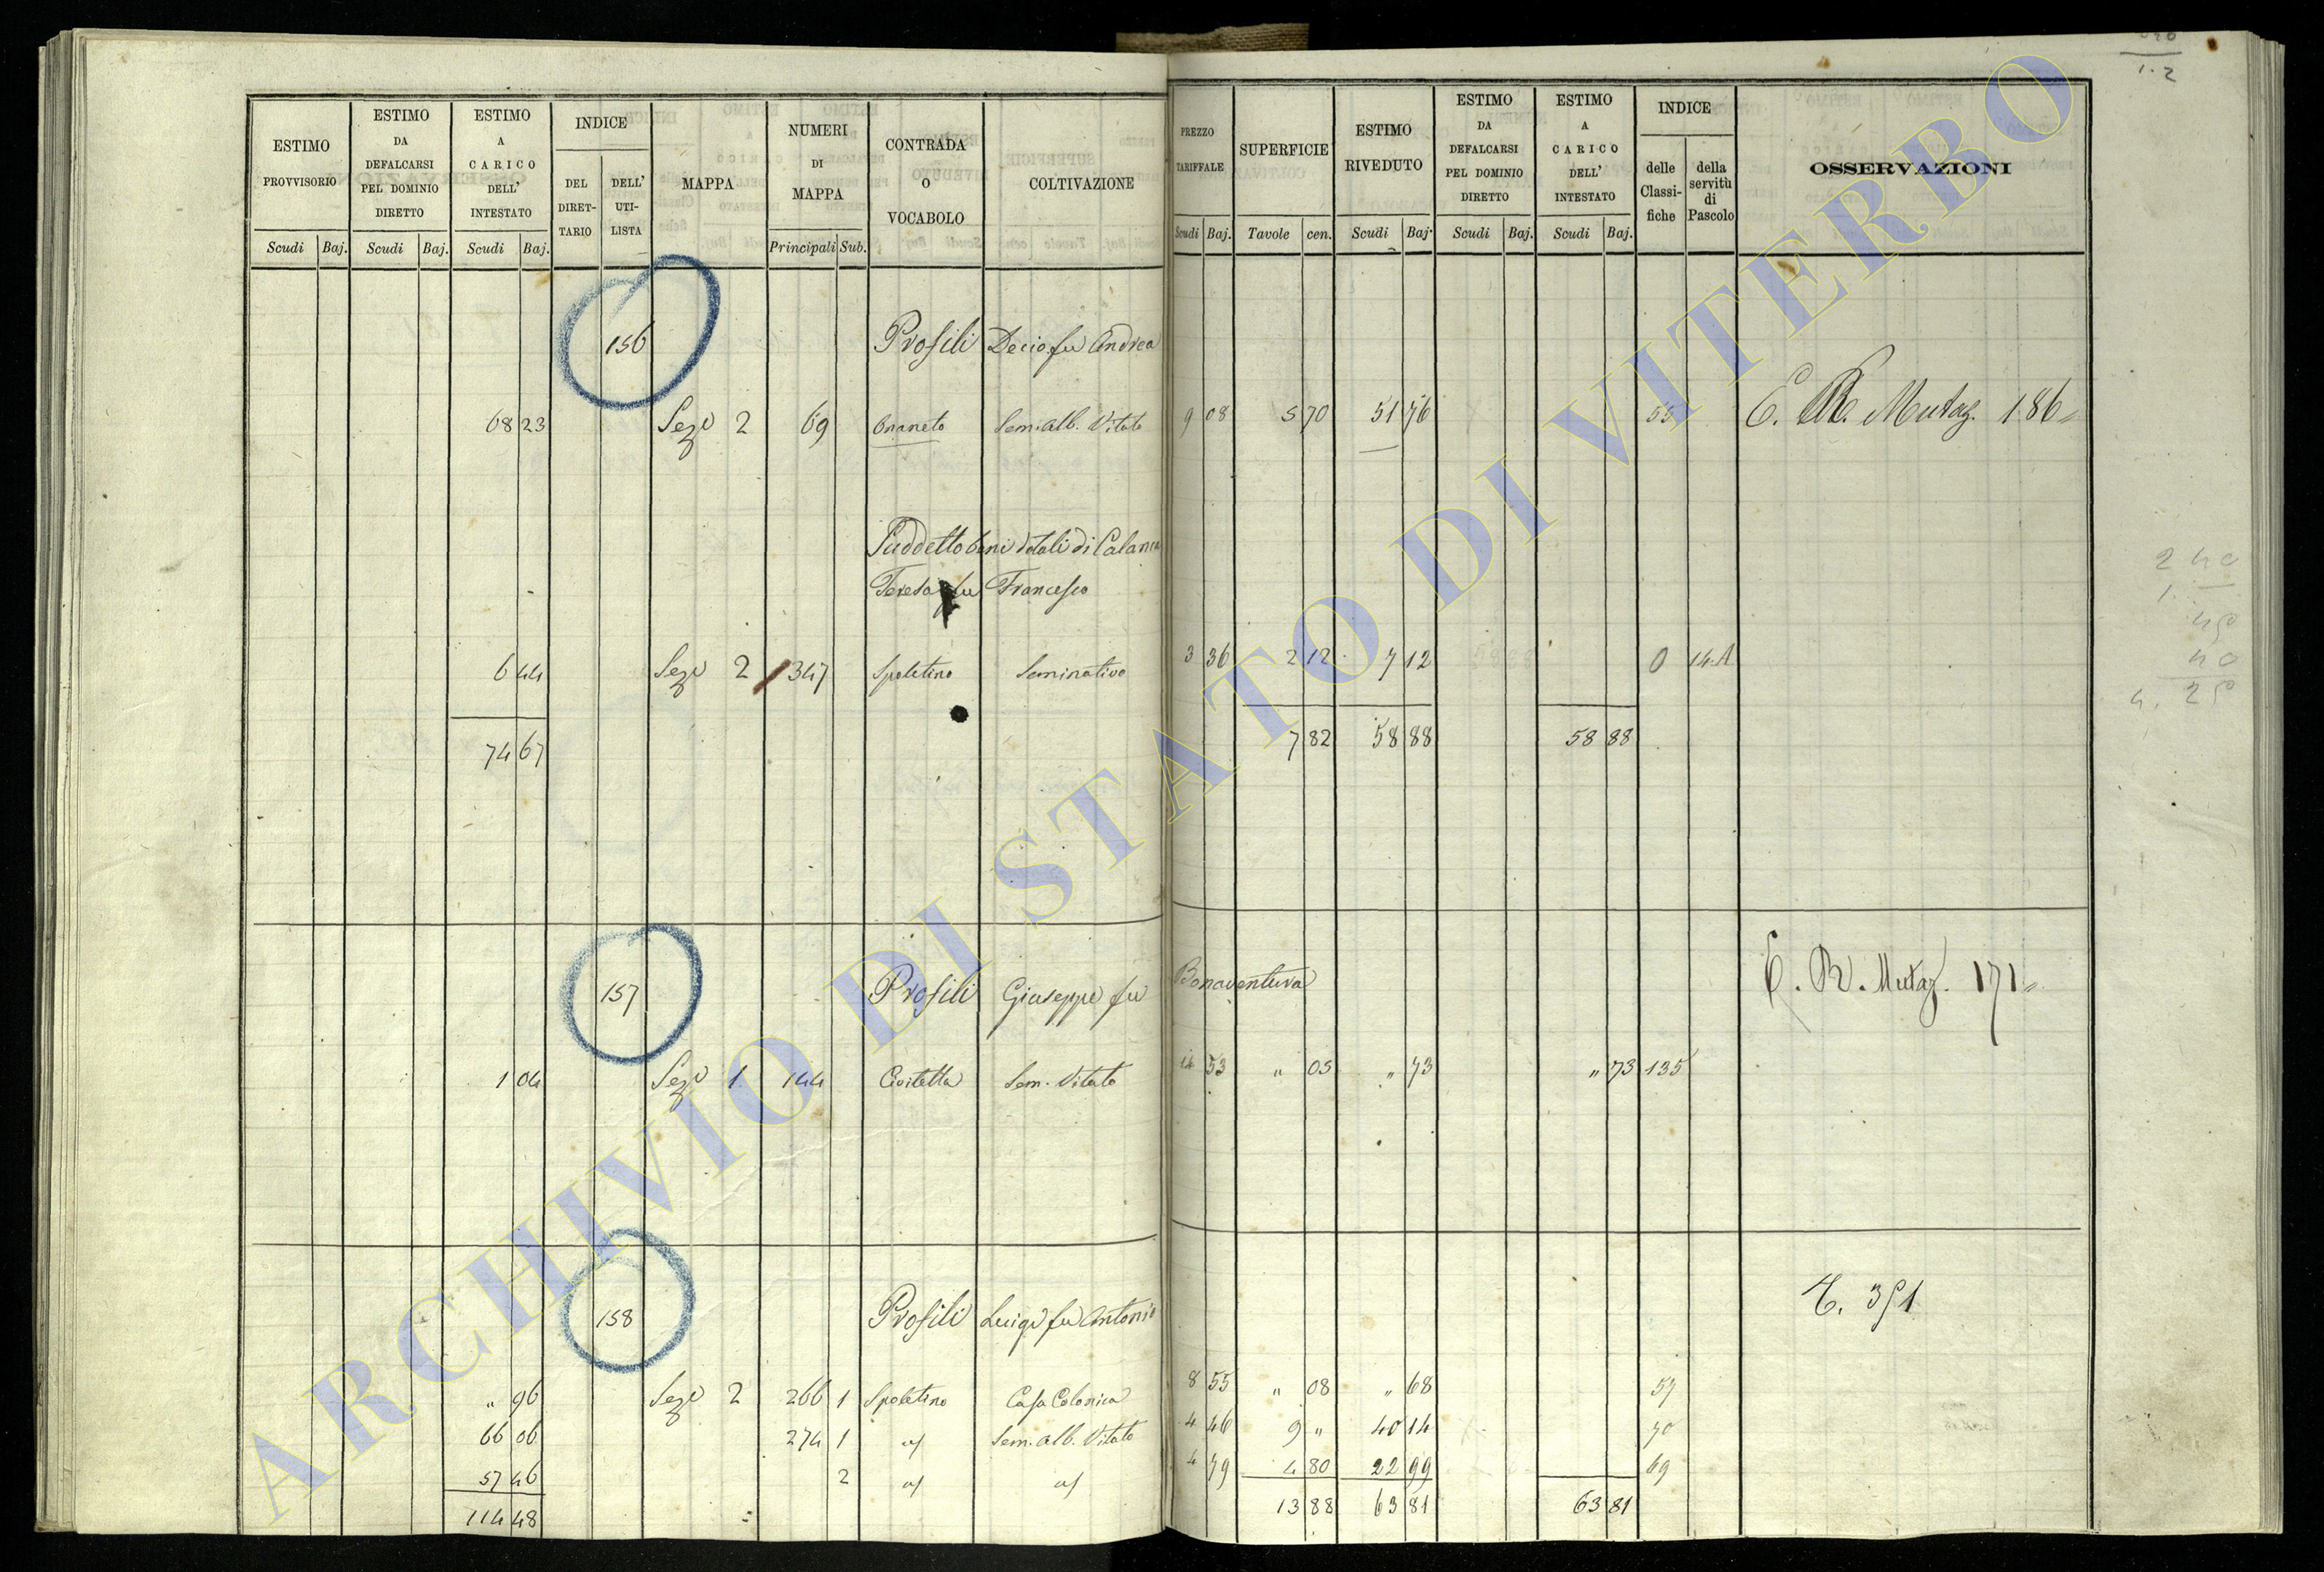 ESTIMO PROVVISORIO | ESTIMO DA DEFALCARSI PEL DOMINIO DIRETTO | ESTIMO A CARICO DELL' INTESTATO | INDICE DEL DIRETTARIO | DELL' UTILISTA | MAPPA | NUMERI DI MAPPA | CONTRADA O VOCABOLO | COLTIVAZIONE | PREZZO TARIFFALE | SUPERFICIE | ESTIMO RIVEDUTO | ESTIMO DA DEFALCARSI PEL DOMINIO DIRETTO | ESTIMO A CARICO DELL' INTESTATO | INDICE delle Classifiche | della servitù di Pascolo | OSSERVAZIONI
Scudi Baj. | Scudi Baj. | Scudi Baj. | Principali Sub. | Scudi Baj. | Tavole cen. | Scudi Baj. | Scudi Baj. | Scudi Baj.
156 Profili Decio fu Andrea
68 23 Sezе 2 69 Onaneto Sem. alb. Vitato 9 08 5 70 51 76 55 E. R. Mutaz. 186
Suddetto beni dotali di Calanca
Teresa fu Francesco
6 44 Seze 2 347 Spoletino Seminativo 3 36 2 12 7 12 0 14.A
74 67 7 82 58 88 58 88
157 Profili Giuseppe fu Bonaventura E. R. Mutaz. 171
1 04 Seze 1 144 Civitella Sem. Vitato 14 53 " 05 " 73 " 73 135
158 Profili Luigi fu Antonio E. 351
" 96 Seze 2 266 1 Spoletino Casa Colonica 8 55 " 08 " 68 57
66 06 274 1 Sem. alb. Vitato 4 46 9 " 40 14 70
57 46 2 4 79 4 80 22 99 69
114 48 13 88 63 81 63 81
ARCHIVIO DI STATO DI VITERBO